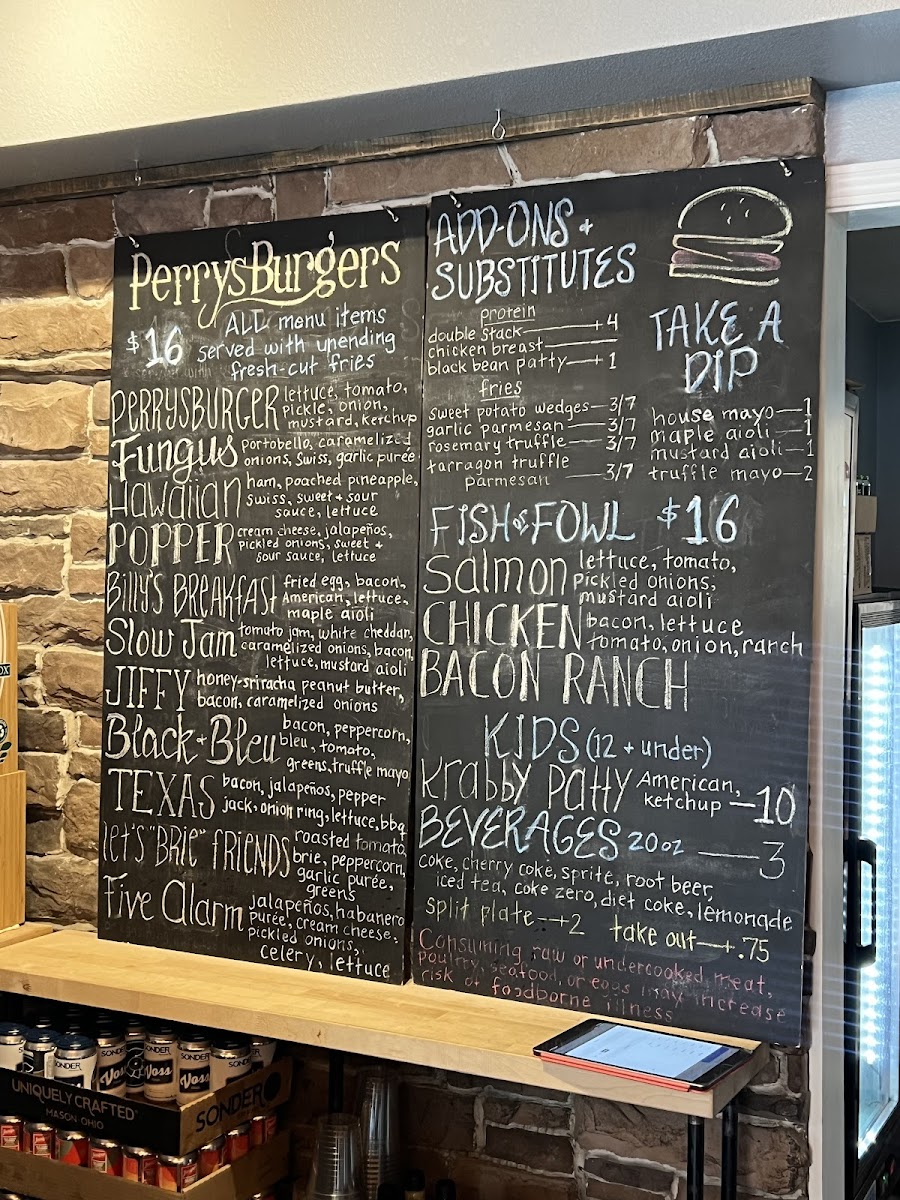 PerrysBurgers
$16
ALL menu items
served with unending
fresh-cut fries
PERRYSBURGER lettuce, tomato,
pickle, onion,
mustard, ketchup
Fungus portobello, caramelized
onions, Swiss, garlic purée
Hawaiian ham, poached pineapple,
swiss, sweet + sour
sauce, lettuce
POPPER cream cheese, jalapeños,
pickled onions, sweet +
sour sauce, lettuce
Billy's BREAKfAST fried egg, bacon,
American, lettuce,
maple aioli
Slow Jam tomato jam, white cheddar,
caramelized onions, bacon,
lettuce, mustard aioli
JIFFY honey-sriracha peanut butter,
bacon, caramelized onions
Black+Bleu bacon, peppercorn,
bleu, tomato,
greens, truffle mayo
TEXAS bacon, jalapeños, pepper
jack, onion ring, lettuce, bbq
let's "BRIE" fRIENDS roasted tomato,
brie, peppercorn,
garlic purée,
greens
Five Alarm jalapeños, habanero
purée, cream cheese,
pickled onions,
celery, lettuce
ADD-ONS +
SUBSTITUTES
protein
double stack—+4
chicken breast—
black bean patty—+1
fries
sweet potato wedges—3/7
garlic parmesan—3/7
rosemary truffle—3/7
tarragon truffle
parmesan—3/7
TAKE A
DIP
house mayo—1
maple aioli—1
mustard aioli—1
truffle mayo—2
FISH or FOWL $16
Salmon lettuce, tomato,
pickled onions,
mustard aioli
CHICKEN bacon, lettuce
tomato, onion, ranch
BACON RANCH
KIDS (12 + under)
Krabby Patty American,
ketchup—10
BEVERAGES 20oz—3
coke, cherry coke, sprite, root beer,
iced tea, coke zero, diet coke, lemonade
split plate—+2 take out—+.75
Consuming raw or undercooked meat,
poultry, seafood, or eggs may increase
risk of foodborne illness
SONDER
Voss
SONDER
Voss
UNIQUELY CRAFTED
MASON·OHIO
SONDER